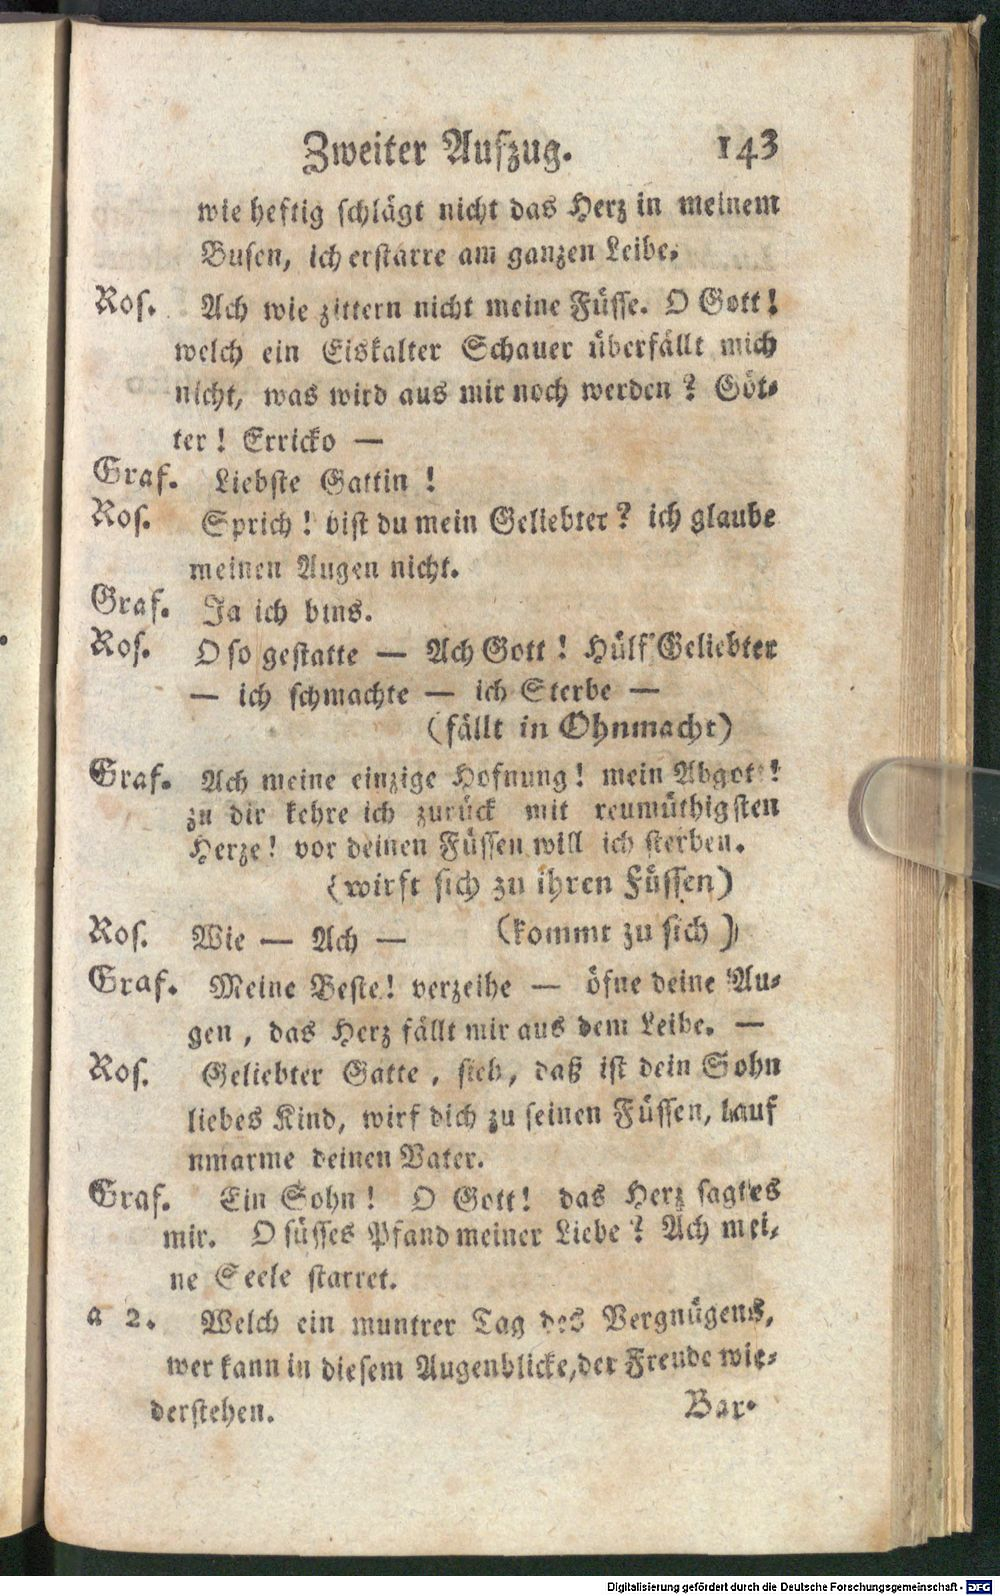 Zweiter Aufzug. 143
wie heftig schlägt nicht das Herz in meinem
Busen, ich erstarre am ganzen Leibe.
Ros. Ach wie zittern nicht meine Füsse. O Gott!
welch ein Eiskalter Schauer überfällt mich
nicht, was wird aus mir noch werden? Göt-
ter! Erricko —
Graf. Liebste Gattin!
Ros. Sprich! bist du mein Geliebter? ich glaube
meinen Augen nicht.
Graf. Ja ich bins.
Ros. O so gestatte — Ach Gott! Hülf Geliebter
— ich schmachte — ich Sterbe —
(fällt in Ohnmacht)
Graf. Ach meine einzige Hofnung! mein Abgott!
zu dir kehre ich zurück mit reumüthigsten
Herze! vor deinen Füssen will ich sterben.
(wirft sich zu ihren Füssen)
Ros. Wie — Ach — (kommt zu sich)
Graf. Meine Beste! verzeihe — öfne deine Au-
gen, das Herz fällt mir aus dem Leibe. —
Ros. Geliebter Gatte, sieh, daß ist dein Sohn
liebes Kind, wirf dich zu seinen Füssen, lauf
nmarme deinen Vater.
Graf. Ein Sohn! O Gott! das Herz sagt es
mir. O süsses Pfand meiner Liebe? Ach mei-
ne Seele starret.
a 2. Welch ein muntrer Tag des Vergnügens,
wer kann in diesem Augenblicke, der Freude wie-
derstehen. Bar-
Digitalisierung gefördert durch die Deutsche Forschungsgemeinschaft - DFG